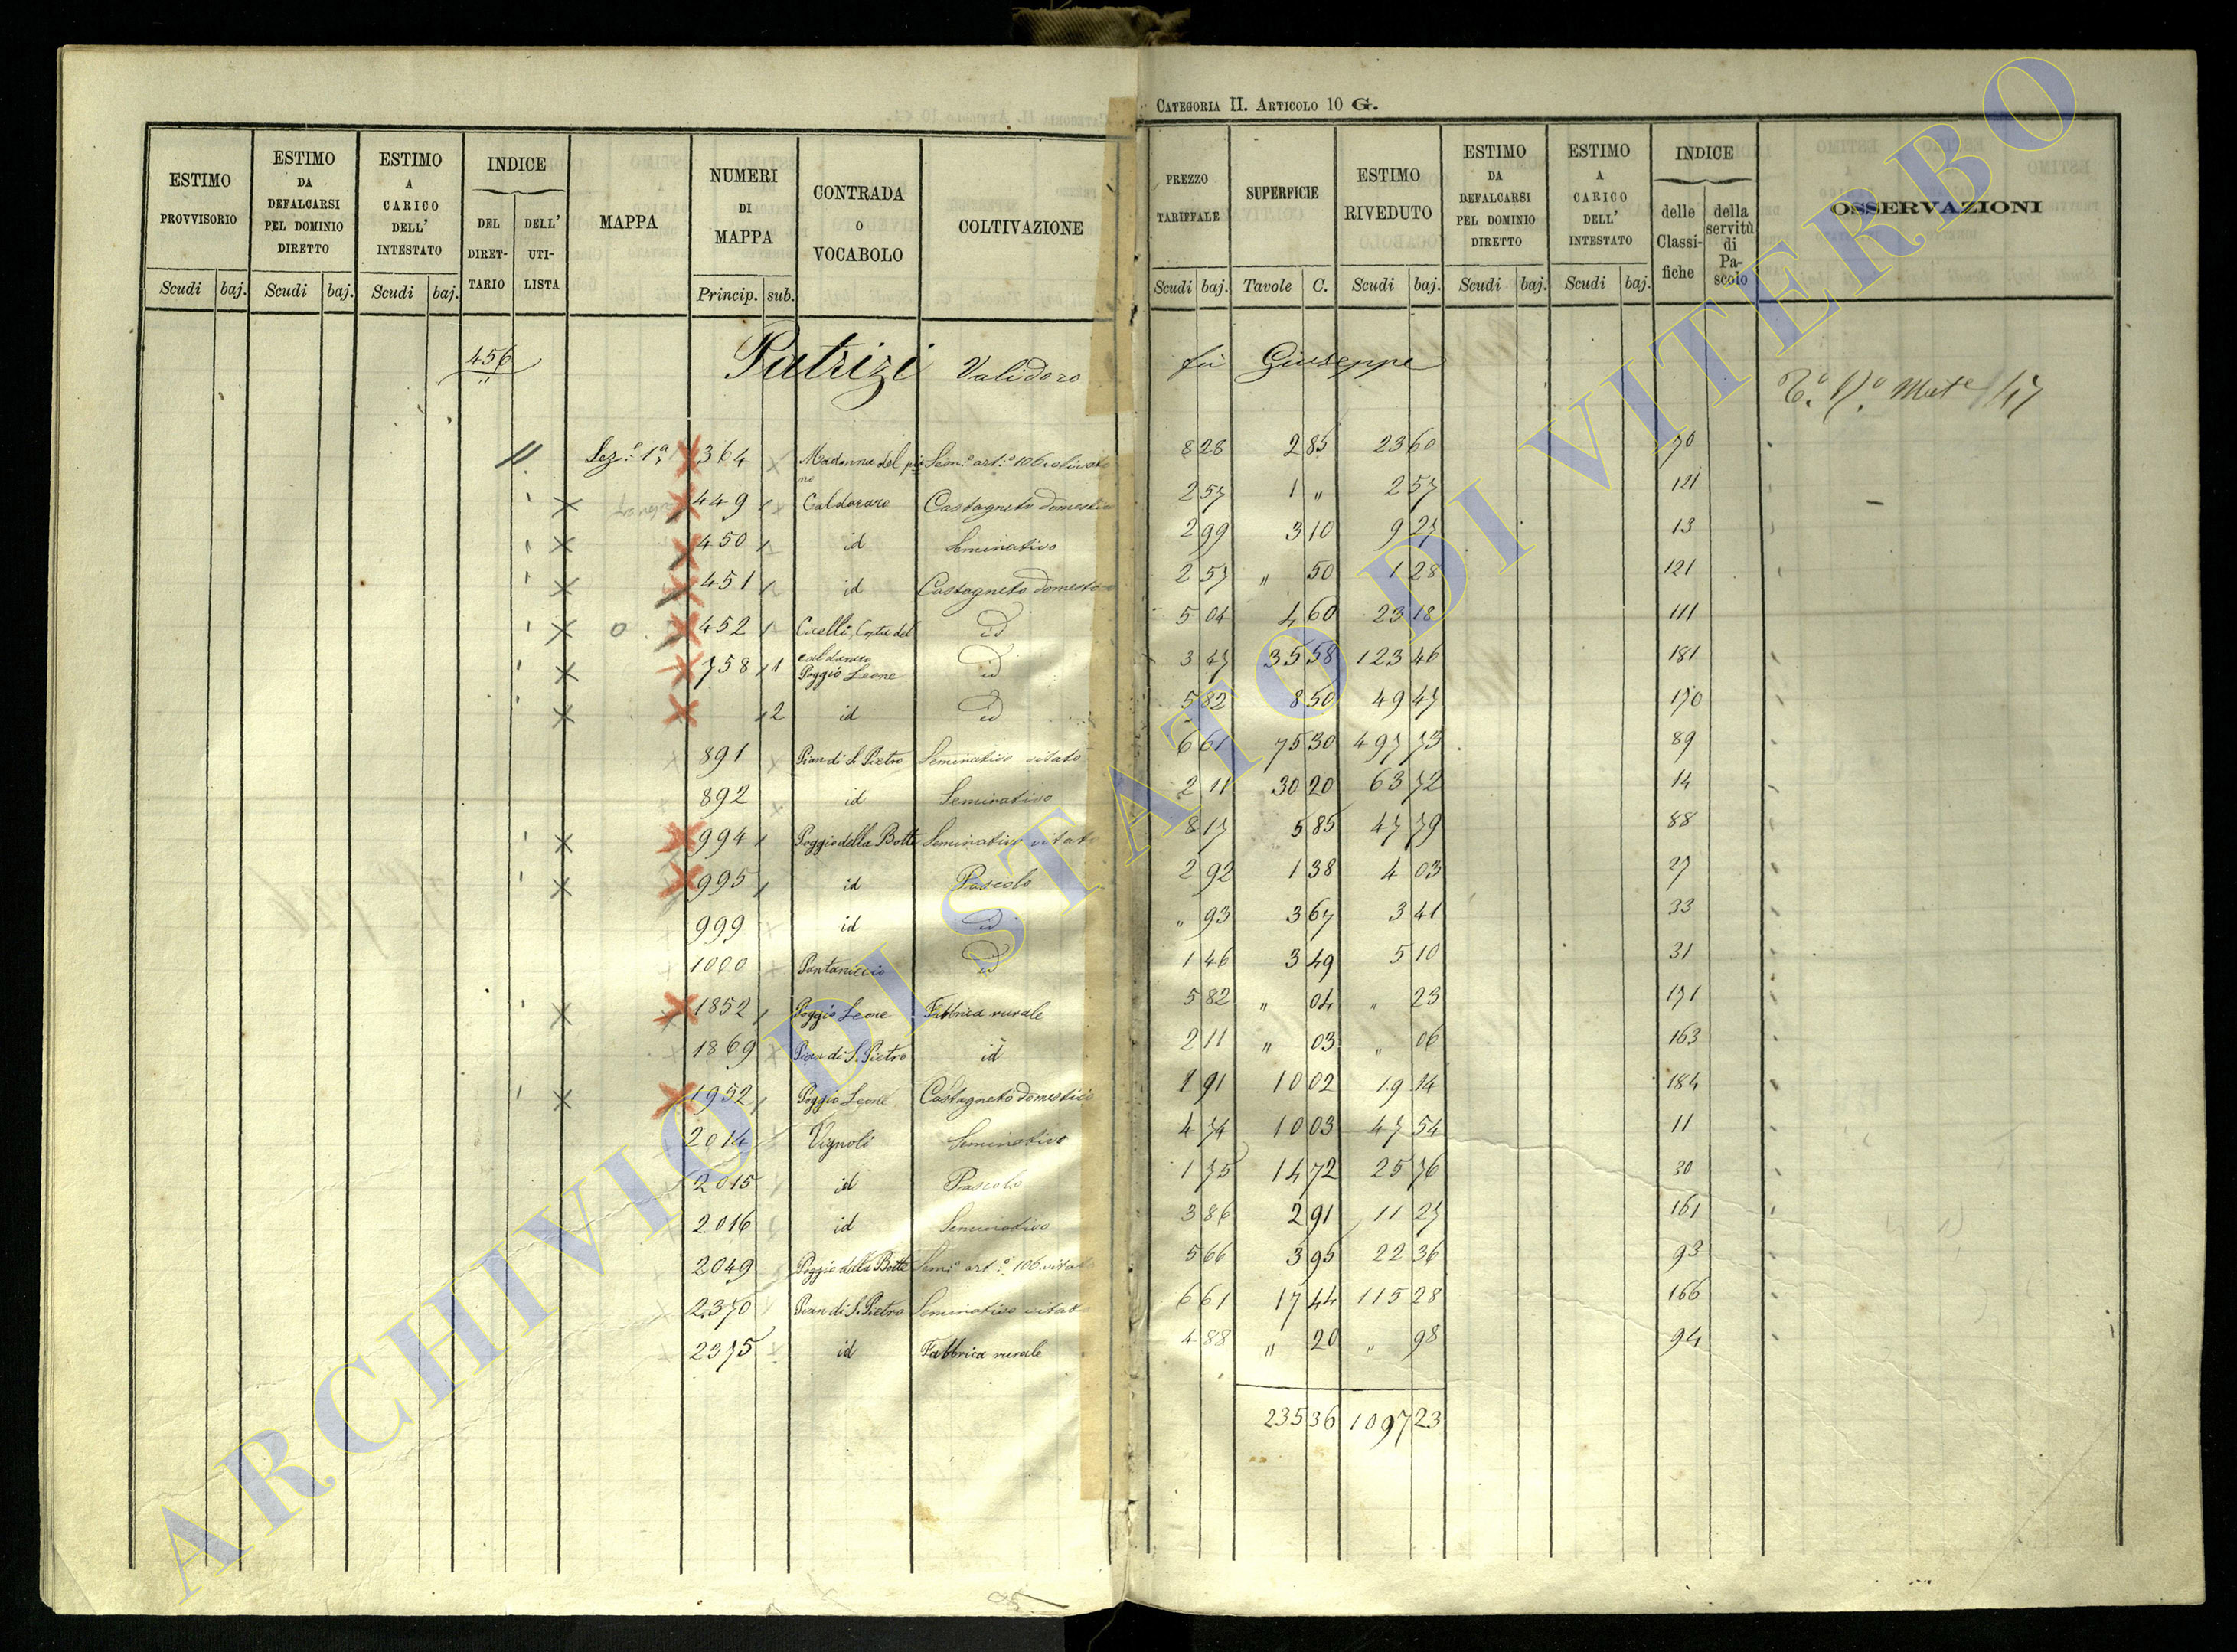 CATEGORIA II. ARTICOLO 10 G.
ESTIMO PROVVISORIO Scudi baj.
ESTIMO DA DEFALCARSI PEL DOMINIO DIRETTO Scudi baj.
ESTIMO A CARICO DELL' INTESTATO Scudi baj.
INDICE DEL DIRETTARIO DELL' UTILISTA
MAPPA
NUMERI DI MAPPA Princip. sub.
CONTRADA O VOCABOLO
COLTIVAZIONE
PREZZO TARIFFALE Scudi baj.
SUPERFICIE Tavole C.
ESTIMO RIVEDUTO Scudi baj.
ESTIMO DA DEFALCARSI PEL DOMINIO DIRETTO Scudi baj.
ESTIMO A CARICO DELL' INTESTATO Scudi baj.
INDICE delle Classifiche della servitù di Pascolo
OSSERVAZIONI
456 Patrizi Validoro fu Giuseppe
Sez.e 1a 364 Madonna del pia no Sem.o art.o 106 olivato 8 28 2 85 23 60 70
449 Caldararo Castagneto domestico 2 57 1 " 2 57 121
450 id Seminativo 2 99 3 10 9 27 13
451 id Castagneto domestico 2 57 " 50 1 28 121
452 Cicelli, Costa del caldararo id 5 04 4 60 23 18 111
758 1 Poggio Leone id 3 47 35 58 123 46 181
2 id id 5 82 8 50 49 47 170
891 Pian di S. Pietro Seminativo vitato 6 61 75 30 497 73 89
892 id Seminativo 2 11 30 20 63 72 14
994 Poggio della Botte Seminativo vitato 8 17 5 85 47 79 88
995 id Pascolo 2 92 1 38 4 03 27
999 id id " 93 3 67 3 41 33
1000 Pantaniccio id 1 46 3 49 5 10 31
1852 Poggio Leone Fabbrica rurale 5 82 " 04 " 23 171
1869 Pian di S. Pietro id 2 11 " 03 " 06 163
1952 Poggio Leone Castagneto domestico 1 91 10 02 19 14 184
2014 Vignoli Seminativo 4 74 10 03 47 54 11
2015 id Pascolo 1 75 14 72 25 76 30
2016 id Seminativo 3 86 2 91 11 27 161
2049 Poggio della Botte Sem.o art.o 106 vitato 5 66 3 95 22 36 93
2370 Pian di S. Pietro Seminativo vitato 6 61 17 44 115 28 166
2375 id Fabbrica rurale 4 88 " 20 " 98 94
235 36 1097 23
ARCHIVIO DI STATO DI VITERBO